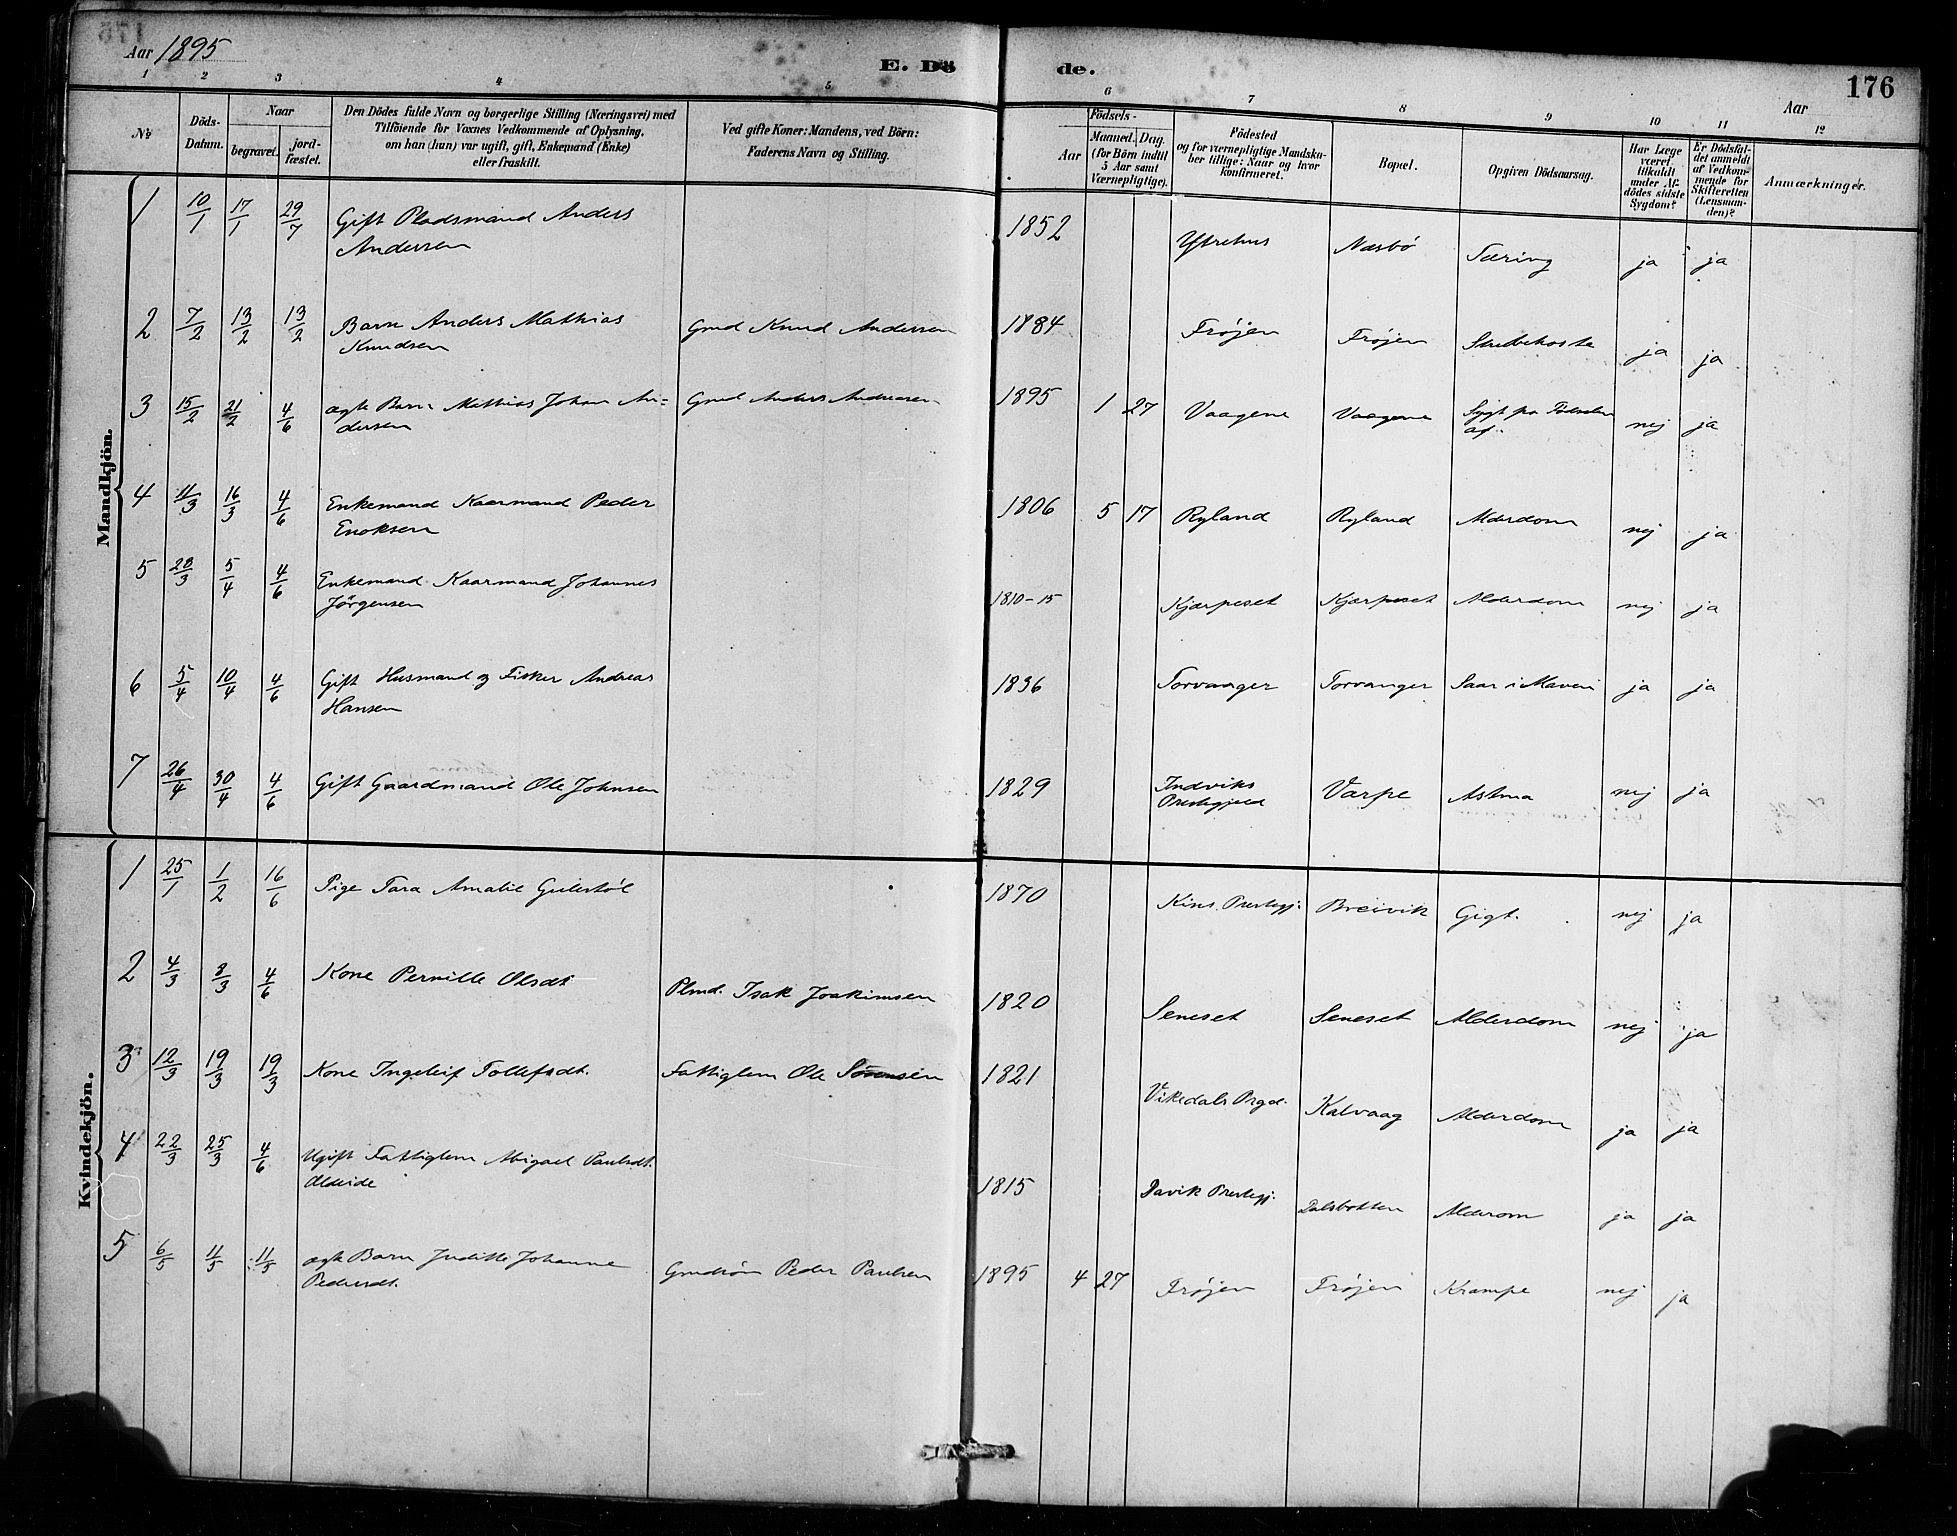 Aar 1895
E. Dö de.
Aar
176
1 2 3 4 5 6 7 8 9 10 11 12
No
Döds-Datum.
Naar
begravet.
jordfæstet.
Den Dödes fulde Navn og borgerlige Stilling (Næringsvei) med
Tilföiende for Voxnes Vedkommende af Oplysning,
om han (hun) var ugift, gift, Enkemand (Enke)
eller fraskilt.
Ved gifte Koner: Mandens, ved Börn:
Faderens Navn og Stilling.
Födsels-
Aar
Maaned. Dag.
(for Börn indtil
5 Aar samt
Værnepligtige).
Födested
og for værnepligtige Mandska-
ber tillige: Naar og hvor
konfirmeret.
Bopæl.
Opgiven Dödsaarsag.
Har Læge
været
tilkaldt
under Af-
dödes sidste
Sygdom?
Er Dödsfal-
det anmeldt
af Vedkom-
mende for
Skifteretten
(Lensman-
den)?
Anmærkninger.
Mandkjön.
1 10/1 17/1 29/7 Gift Pladsmand Anders 1852 Ytrehus Næsbö Tæring ja ja
Andersen
2 7/2 13/2 13/2 Barn Anders Mathias Gmd Knud Andersen 1884 Frøjen Frøjen Strubehoste ja ja
Knudsen
3 15/2 21/2 4/6 ægte Barn Mathias Johan An= Gmd Anders Andreasen 1895 1 27 Vaagene Vaagene Sygt fra Fødselen nej ja
dersen af.
4 11/3 16/3 4/6 Enkemand Kaarmand Peder 1806 5 17 Ryland Ryland Alderdom nej ja
Enoksen
5 28/3 5/4 4/6 Enkemand Kaarmand Johannes 1810-15 Kjærpeset Kjærpeset Alderdom nej ja
Jörgensen
6 5/4 10/4 4/6 Gift Husmand og Fisker Andreas 1836 Torvanger Torvanger Saar i Maven ja ja
Hansen
7 26/4 30/4 4/6 Gift Gaardmand Ole Johnsen 1829 Indviks Varpe Astma nej ja
Prestegjeld
Kvindekjön.
1 25/1 1/2 16/6 Pige Tara Amalie 1870 Kins Prestegj. Breivik Gigt. nej ja
2 4/3 8/3 4/6 Kone Pernille Olsdt Plmd. Isak Joakimsen 1820 Seneset Seneset Alderdom nej ja
3 12/3 19/3 19/3 Kone Ingeleif Tollefsdt. Fattiglem Ole Sørensen 1821 Vikedals Prgd. Kalvaag Alderdom ja ja
4 22/3 25/3 4/6 Ugift Fattiglem Abigael Paulsdt. 1815 Davik Prestegj. Dalsbotten Alderom ja ja
Aldeide
5 6/5 11/5 11/5 ægte Barn Juditte Johanne Gmdsøn Peder Paulsen 1895 4 27 Frøjen Frøjen Krampe nej ja
Pedersdt.